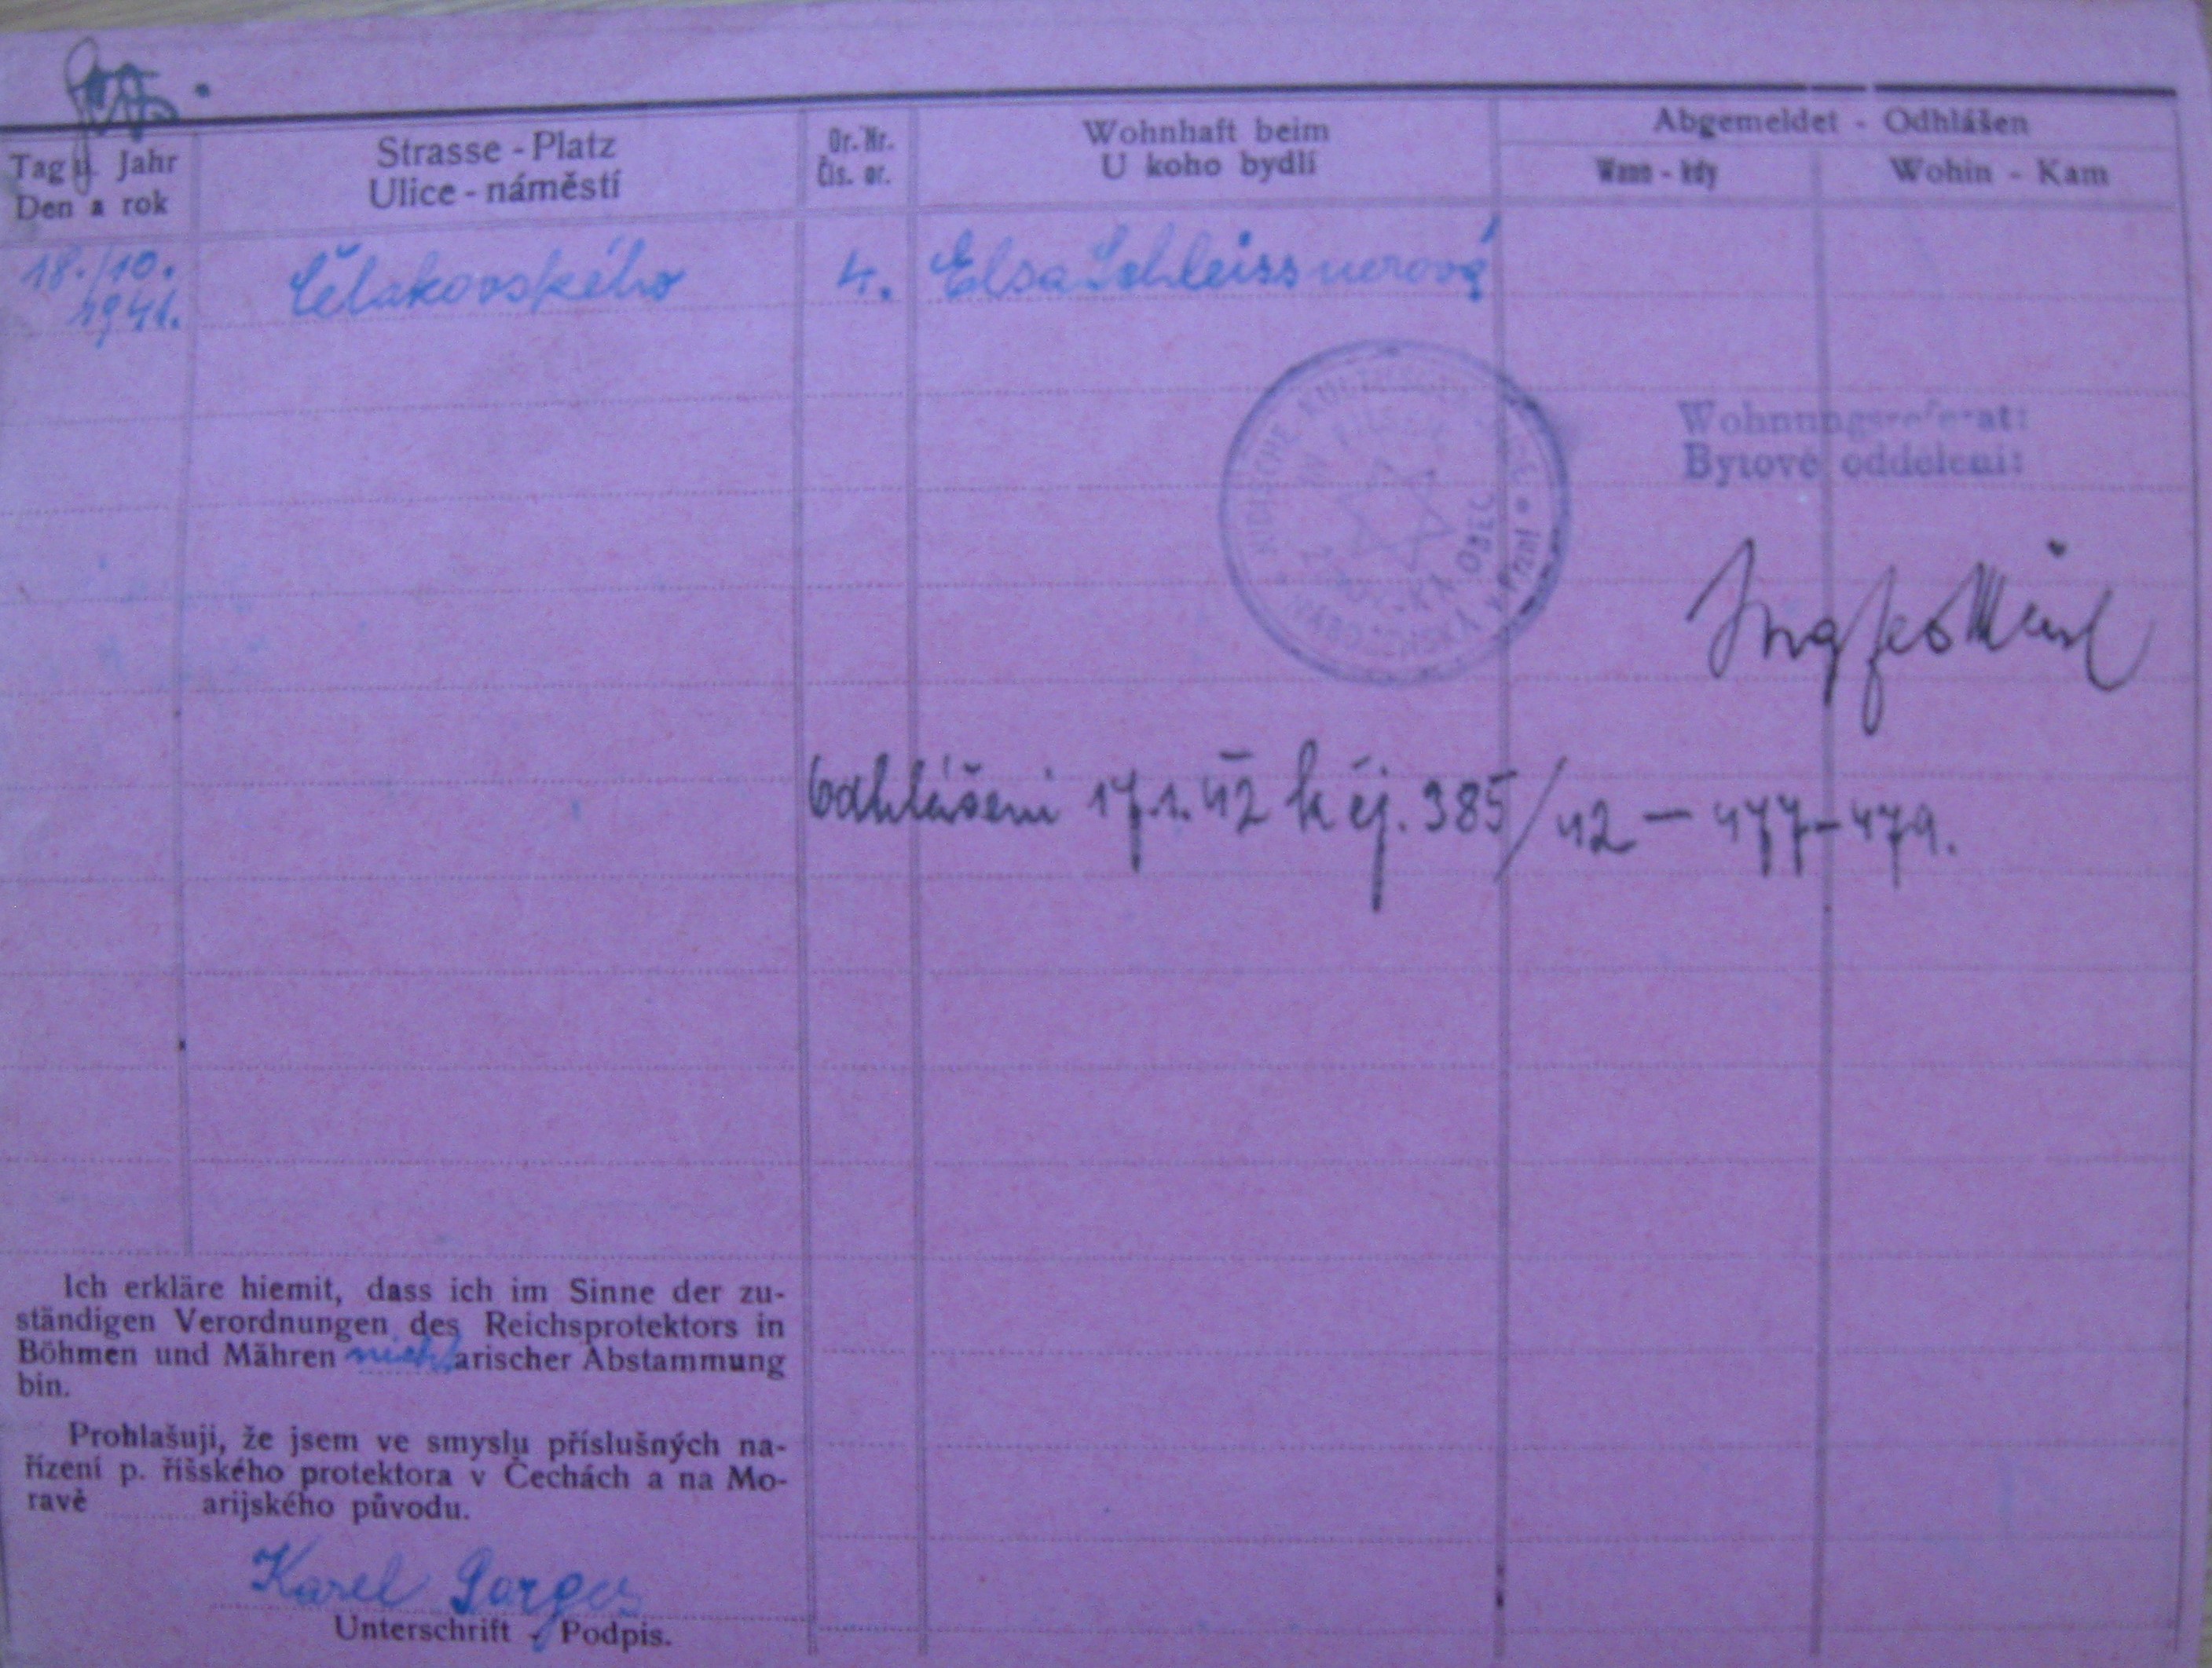 Tag u. Jahr
Den a rok
Strasse - Platz
Ulice - náměstí
Or. Nr.
Čis. or.
Wohnhaft beim
U koho bydlí
Abgemeldet - Odhlášen
Wann - kdy
Wohin - Kam
18./10.
1941.
Čelakovského
4.
Elsa Schleissnerová
JÜDISCHE KULTUSGEMEINDE
IN PILSEN
ŽIDOVSKÁ OBEC
NÁBOŽENSKÁ v Plzni
Wohnungsreferat:
Bytové oddělení:
Ing
Odhlášeni 17.1.42 k čj. 385/42 — 477-479.
Ich erkläre hiemit, dass ich im Sinne der zu-
ständigen Verordnungen des Reichsprotektors in
Böhmen und Mähren nicht arischer Abstammung
bin.
Prohlašuji, že jsem ve smyslu příslušných na-
řízení p. říšského protektora v Čechách a na Mo-
ravě ........... arijského původu.
Karel Porges
Unterschrift - Podpis.